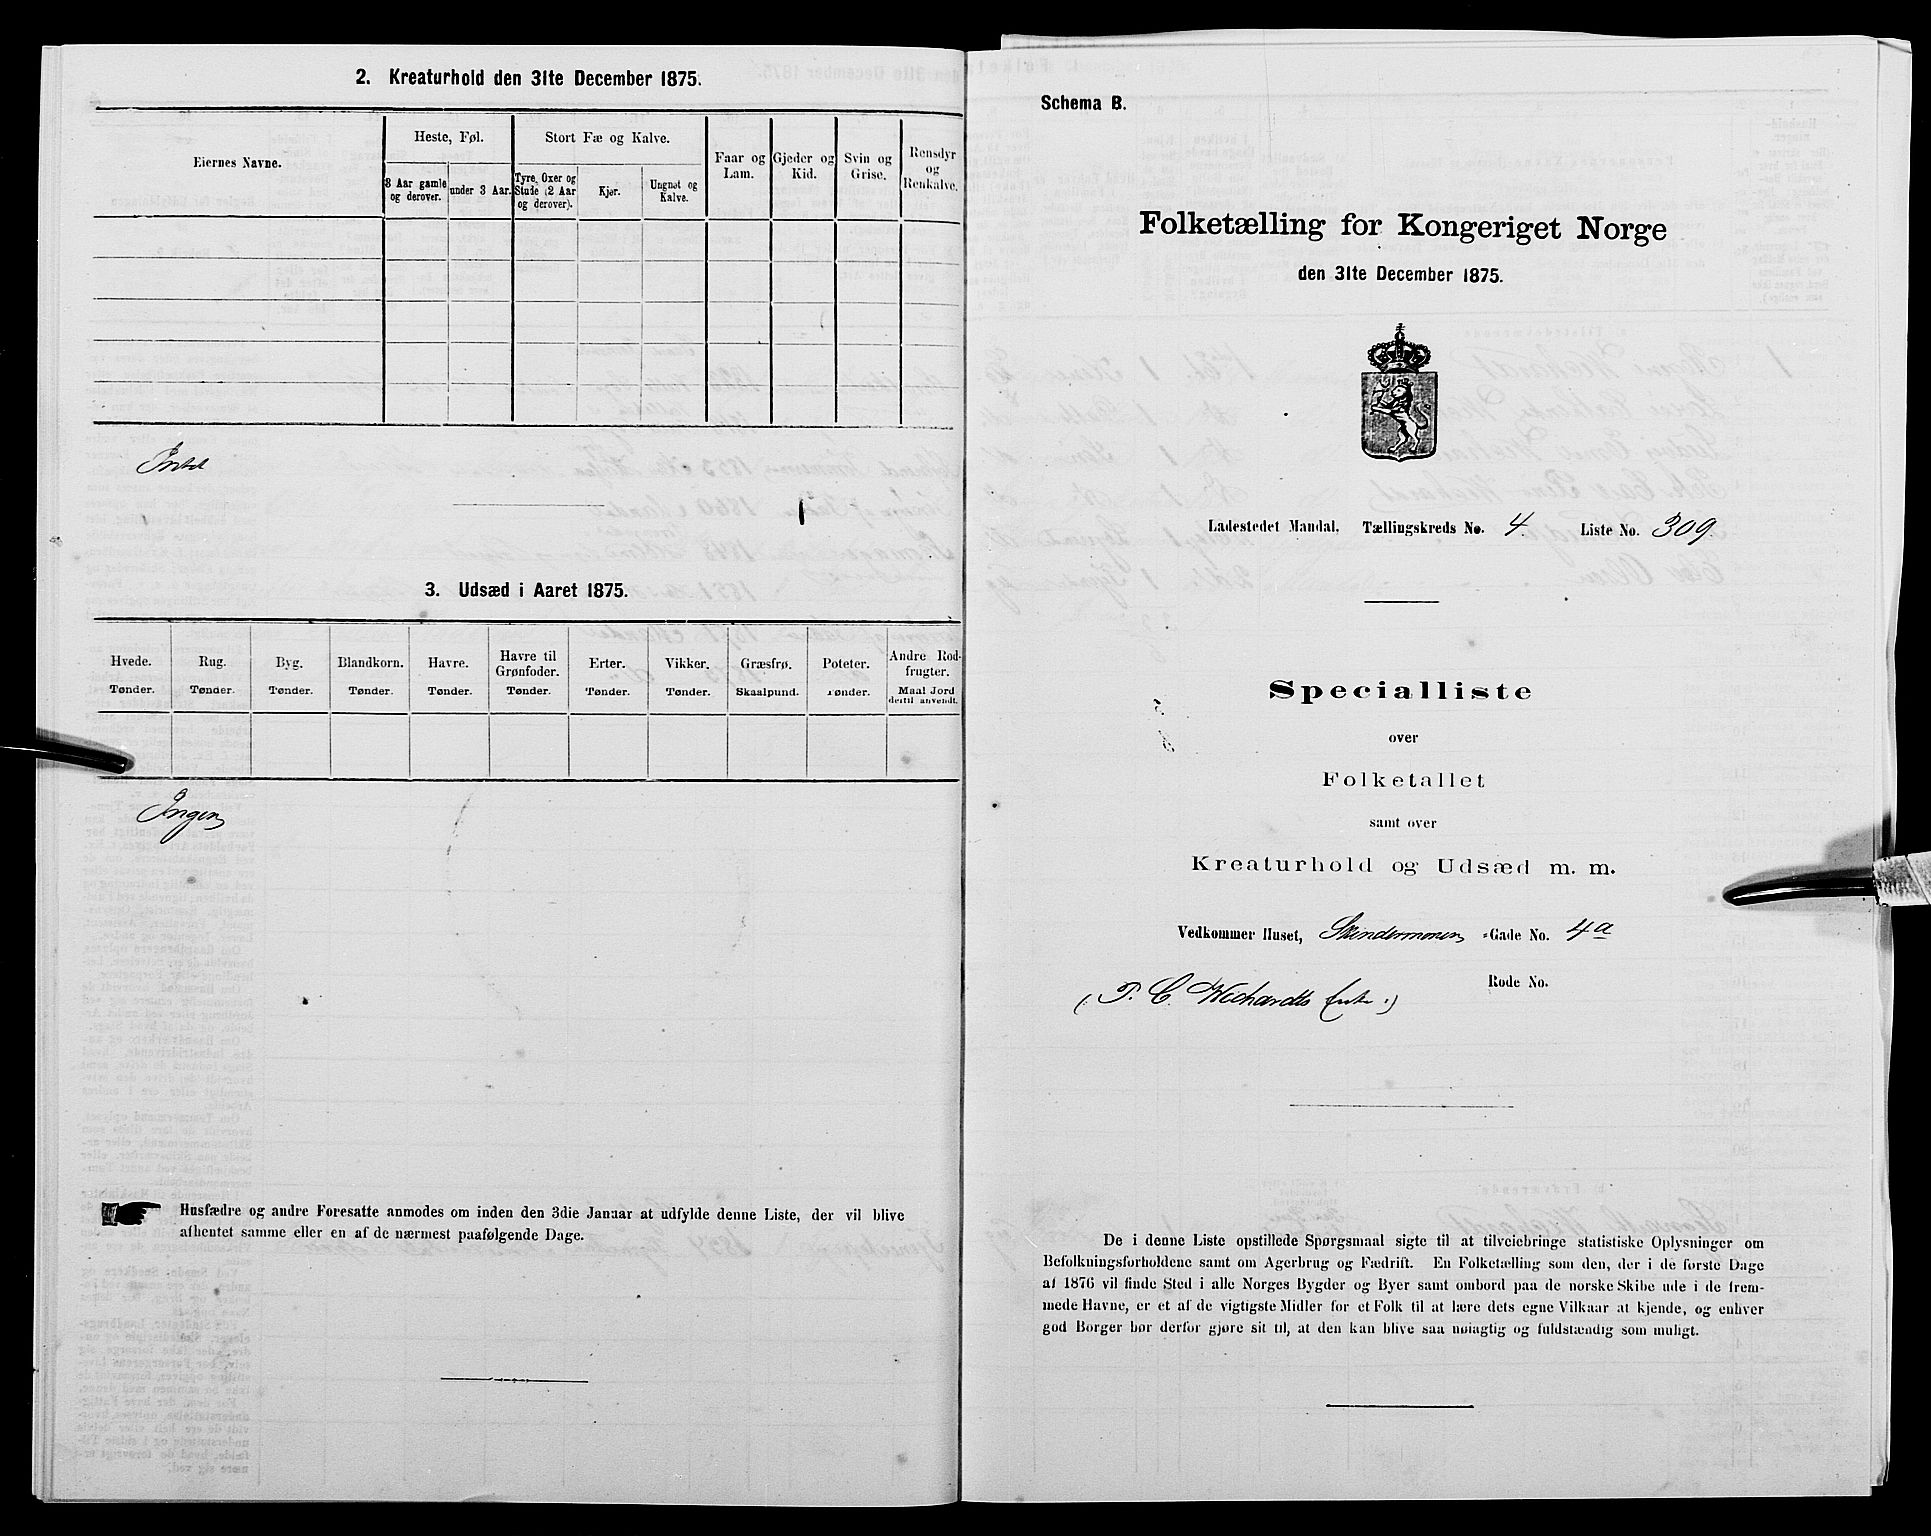 2. Kreaturhold den 31te December 1875.
Eiernes Navne.
Heste, Føl.
3 Aar gamle og derover.
under 3 Aar.
Stort Fæ og Kalve.
Tyre, Oxer og Stude (2 Aar og derover).
Kjør.
Ungnøt og Kalve.
Faar og Lam.
Gjeder og Kid.
Svin og Grise.
Rensdyr og Renkalve.
Intet
3. Udsæd i Aaret 1875.
Hvede. Tønder.
Rug. Tønder.
Byg. Tønder.
Blandkorn. Tønder.
Havre. Tønder.
Havre til Grønfoder. Tønder.
Erter. Tønder.
Vikker. Tønder.
Græsfrø. Skaalpund.
Poteter. Tønder.
Andre Rodfrugter. Maal Jord dertil anvendt.
Ingen
Husfædre og andre Foresatte anmodes om inden den 3die Januar at udfylde denne Liste, der vil blive
afhentet samme eller en af de nærmest paafølgende Dage.
Schema B.
Folketælling for Kongeriget Norge
den 31te December 1875.
Ladestedet Mandal. Tællingskreds No. 4. Liste No. 309.
Specialliste
over
Folketallet
samt over
Kreaturhold og Udsæd m. m.
Vedkommer Huset, Skindermoen -Gade No. 4a
Rode No.
(: P. C. Wichardts Enke :)
De i denne Liste opstillede Spørgsmaal sigte til at tilveiebringe statistiske Oplysninger om
Befolkningsforholdene samt om Agerbrug og Fædrift. En Folketælling som den, der i de første Dage
af 1876 vil finde Sted i alle Norges Bygder og Byer samt ombord paa de norske Skibe ude i de frem-
mede Havne, er et af de vigtigste Midler for et Folk til at lære dets egne Vilkaar at kjende, og enhver
god Borger bør derfor gjøre sit til, at den kan blive saa nøiagtig og fuldstændig som muligt.